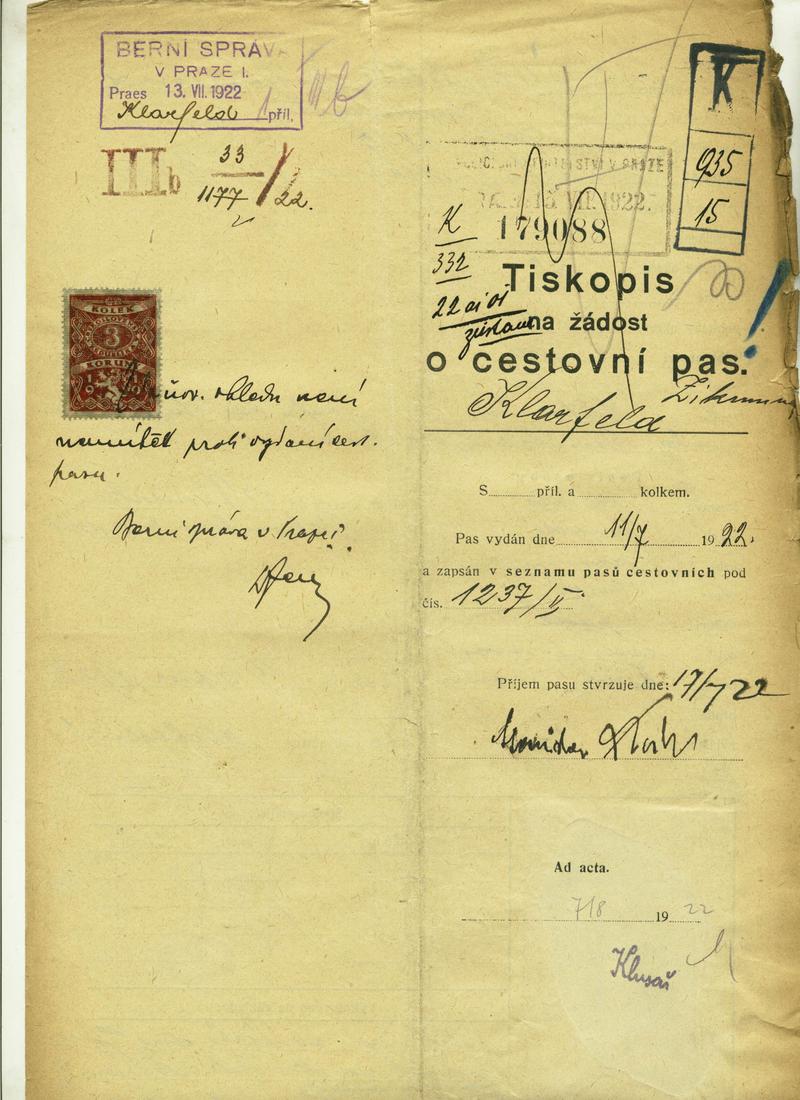 BERNÍ SPRÁVA
V PRAZE I.
Praes 13. VII. 1922
Klarfeld 1 příl.
IIIb
33
1177 / 22.
KOLEK
3
KORUNY
ohledu není
námitek proti vydání cest.
pasu.
Berní správa v Praze I.
K
935
15
V PRAZE
VII. 1922.
179088
K
332
22
Tiskopis
na žádost
o cestovní pas.
Klarfeld Zikmund
S příl. a kolkem.
Pas vydán dne 11/7 1922.
a zapsán v seznamu pasů cestovních pod
čís. 1237/II
Příjem pasu stvrzuje dne: 17/7 22
Ad acta.
7/8 1922